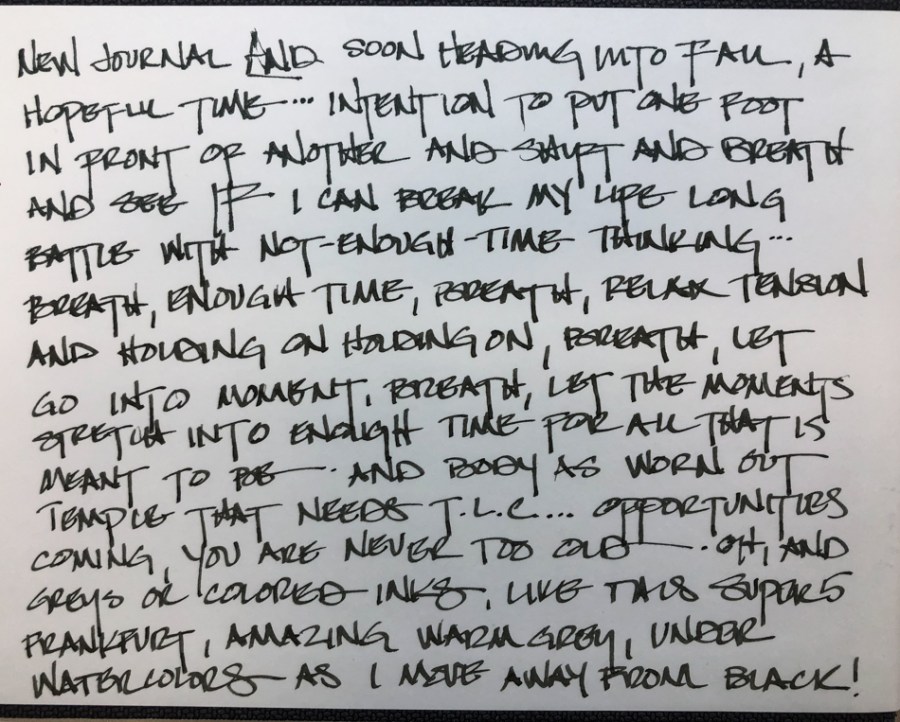 NEW JOURNAL AND SOON HEADING INTO FALL, A
HOPEFUL TIME... INTENTION TO PUT ONE FOOT
IN FRONT OF ANOTHER AND SHIFT AND BREATH
AND SEE IF I CAN BREAK MY LIFE LONG
BATTLE WITH NOT-ENOUGH-TIME THINKING...
BREATH, ENOUGH TIME, BREATH, RELAX TENSION
AND HOLDING ON HOLDING ON, BREATH, LET
GO INTO MOMENT, BREATH, LET THE MOMENTS
STRETCH INTO ENOUGH TIME FOR ALL THAT IS
MEANT TO BE — . AND BODY AS WORN OUT
TEMPLE THAT NEEDS T.L.C.... OPPORTUNITIES
COMING, YOU ARE NEVER TOO OLD — . OH, AND
GREYS OR COLORED INKS, LIKE THIS SUPER5
FRANKFURT, AMAZING WARM GREY, UNDER
WATERCOLORS AS I MOVE AWAY FROM BLACK!